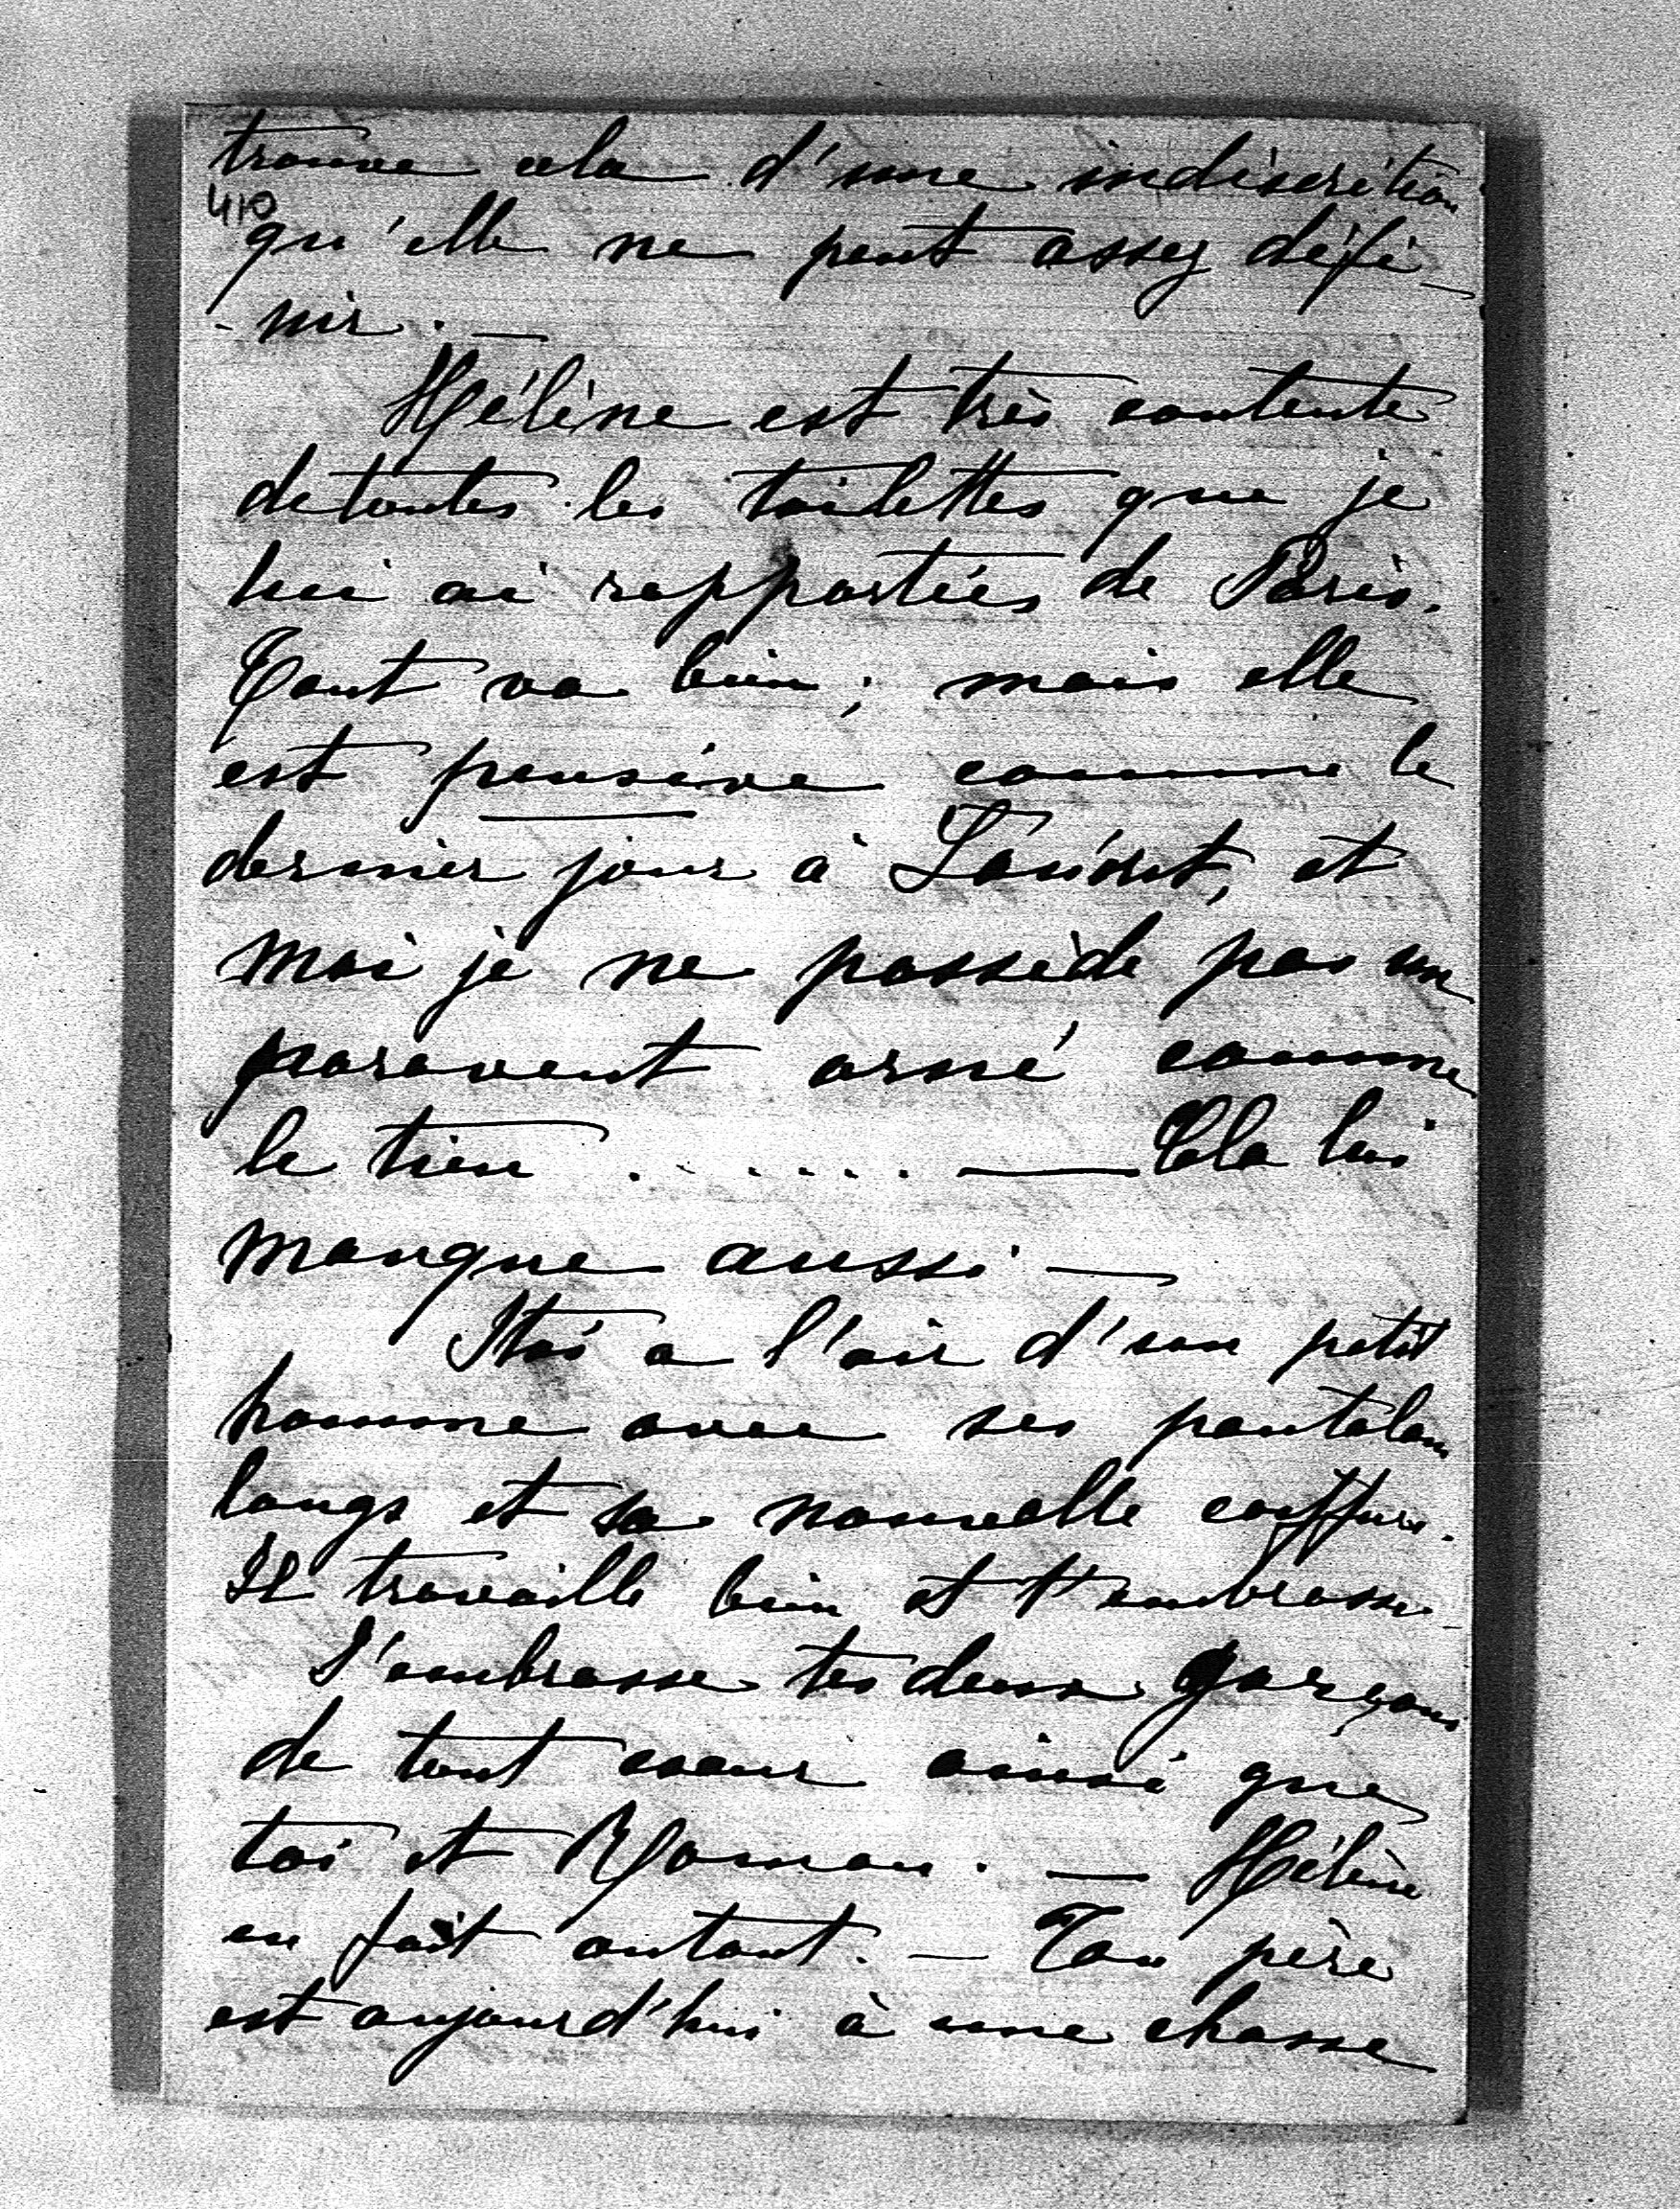 trouve cela d'une indiscrétion
410
qu'elle ne peut assez défi-
-nir. —
Hélène est très contente
de toutes les toilettes que je
lui ai rapportées de Paris.
Tout va bien; mais elle
est pensive comme le
dernier jour à et
moi je ne possède pas un
paravent orné comme
le tien . . . . . . — Cela lui
manque aussi —
a l'air d'un petit
homme avec ses pantalons
longs et sa nouvelle coiffure.
Il travaille bien et t'embrasse
J'embrasse tes deux garçons
de tout cœur ainsi que
toi et Maman. — Hélène
en fait autant. — Ton père
est aujourd'hui à une chasse